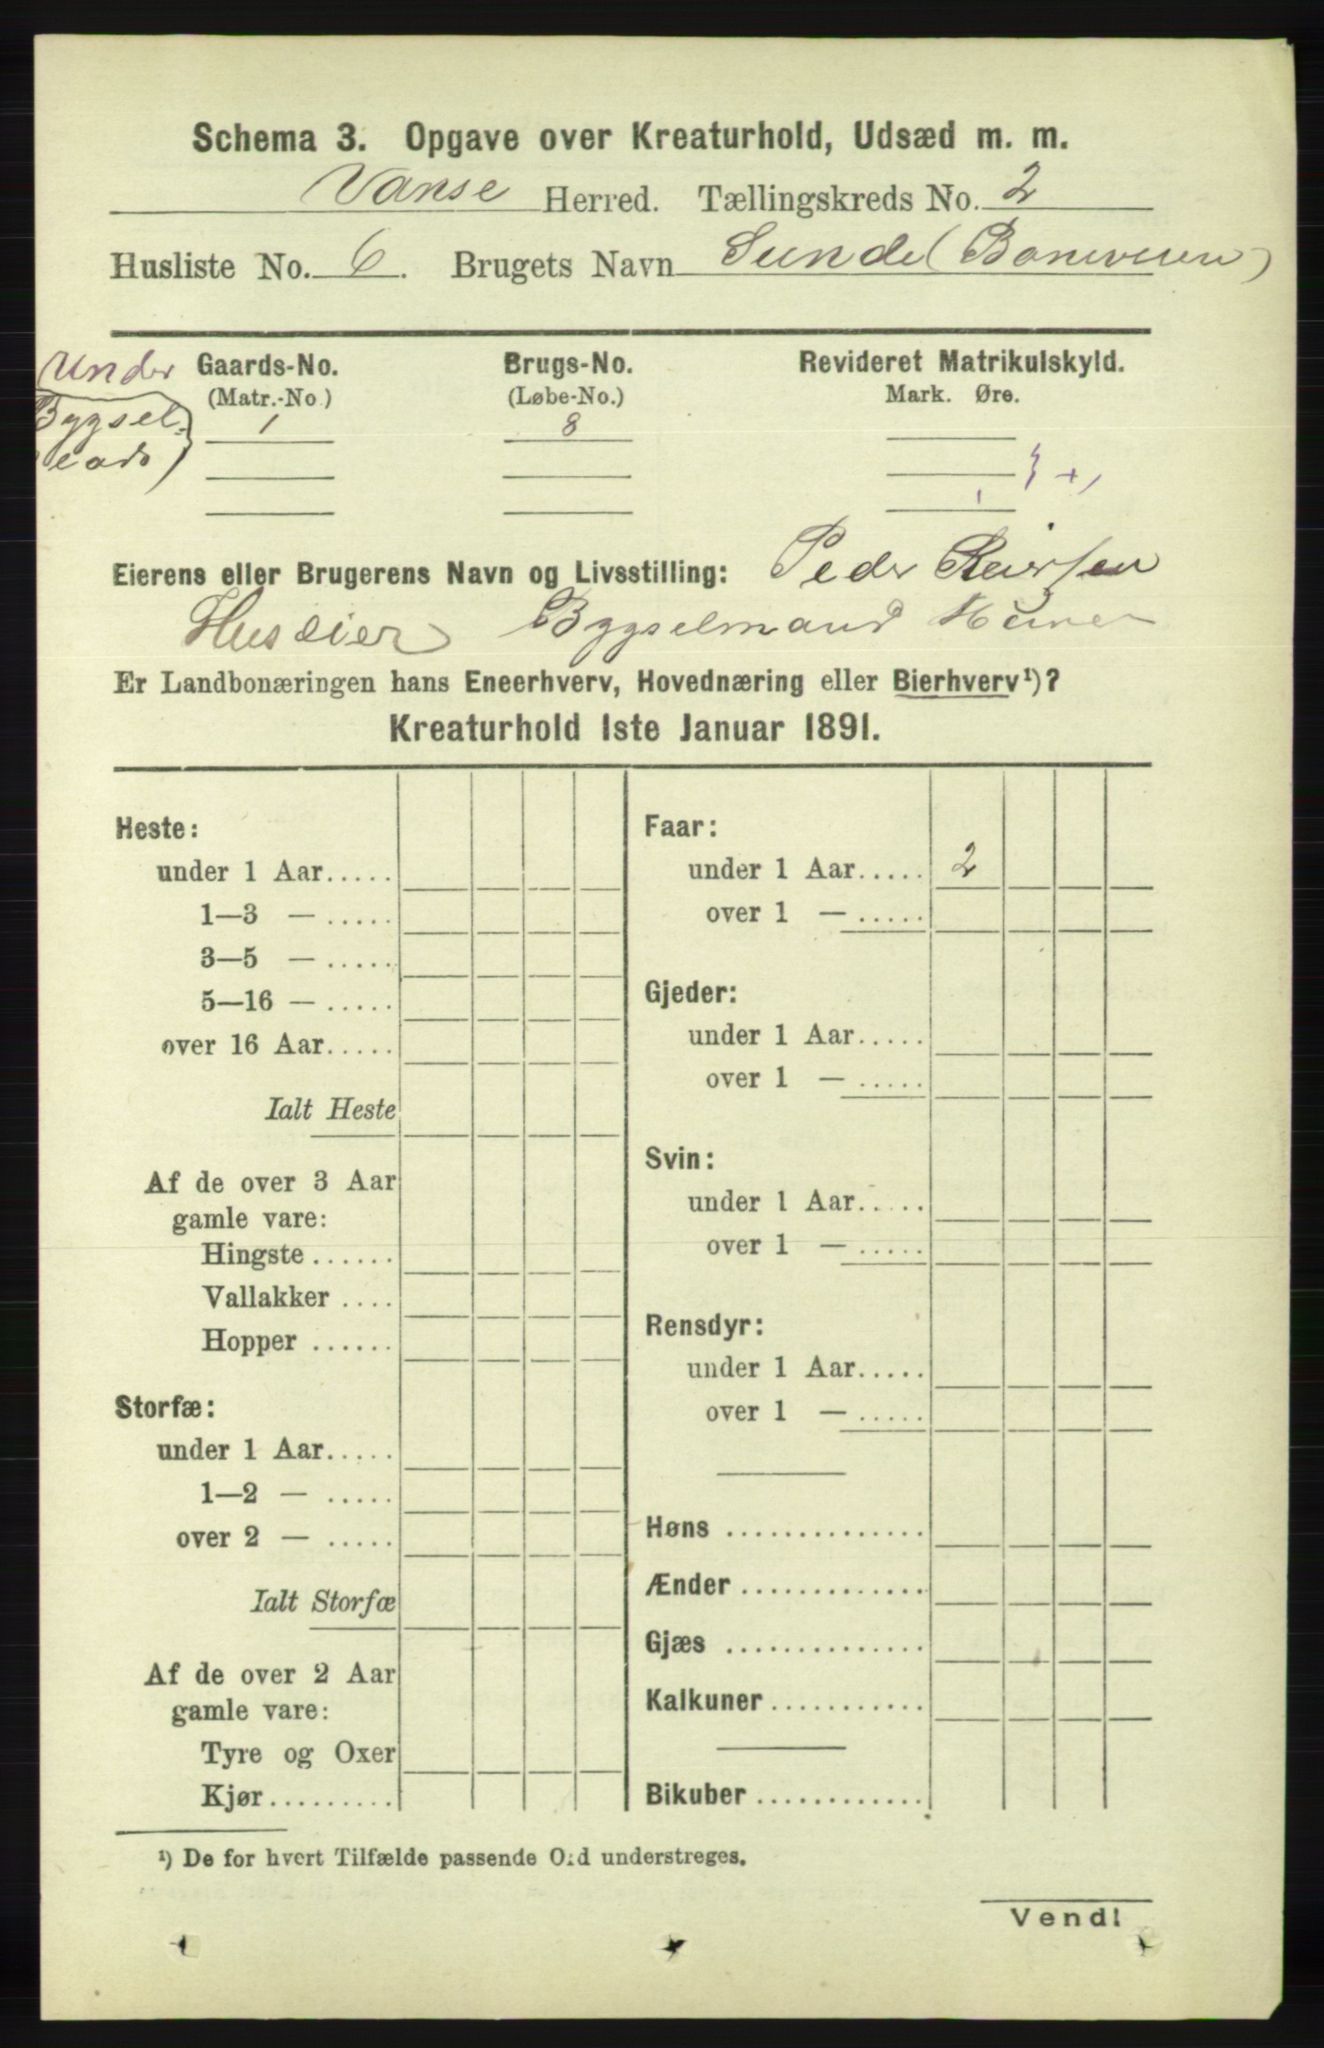 Schema 3. Opgave over Kreaturhold, Udsæd m. m.
Vanse Herred. Tællingskreds No. 2
Husliste No. 6. Brugets Navn Sunde (
Under Gaards-No. Brugs-No. Revideret Matrikulskyld.
(Matr.-No) (Løbe-No.) Mark. Øre.
Bygsel- 1 8
Eierens eller Brugerens Navn og Livsstilling: Peder Reiersen
Huseier Bygselmand
Er Landbonæringen hans Eneerhverv, Hovednæring eller Bierhverv¹)?
Kreaturhold 1ste Januar 1891.
Heste:
under 1 Aar.....
1—3 — .....
3—5 — .....
5—16 — .....
over 16 Aar.....
Ialt Heste
Af de over 3 Aar
gamle vare:
Hingste ......
Vallakker ....
Hopper ......
Storfæ:
under 1 Aar.....
1—2 — .....
over 2 — .....
Ialt Storfæ
Af de over 2 Aar
gamle vare:
Tyre og Oxer
Kjør.........
Faar:
under 1 Aar..... 2
over 1 — .....
Gjeder:
under 1 Aar.....
over 1 — .....
Svin:
under 1 Aar.....
over 1 — .....
Rensdyr:
under 1 Aar.....
over 1 — .....
Høns ..............
Ænder .............
Gjæs ..............
Kalkuner ...........
Bikuber ............
¹) De for hvert Tilfælde passende Ord understreges.
Vend!